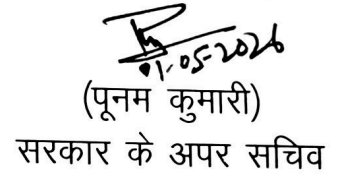 01-05-2026
(पूनम कुमारी)
सरकार के अपर सचिव